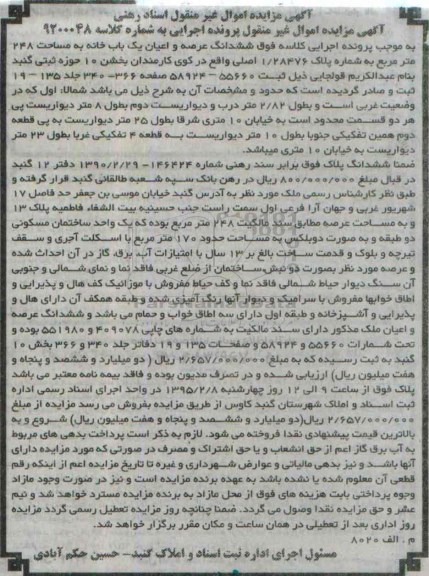 آگهی مزایده اموال غیر منقول اسناد رهنی
آگهی مزایده اموال غیر منقول پرونده اجرایی به شماره کلاسه ۹۲۰۰۰۴۸
به موجب پرونده اجرایی کلاسه فوق ششدانگ عرصه و اعیان یک باب خانه به مساحت ۲۴۸
متر مربع به شماره پلاک ۱/۲۸۴۷۶ اصلی واقع در کوی کارمندان بخش ۱۰ حوزه ثبتی گنبد
بنام عبدالکریم قولجایی ذیل ثبت ۵۵۶۶۰ – ۵۸۹۲۴ صفحه ۳۶۶- ۳۴۰ جلد ۱۳۵ – ۱۹
ثبت و صادر گردیده است که حدود و مشخصات آن به شرح ذیل می باشد شمالا: اول که در
وضعیت غربی است و بطول ۲/۸۲ متر درب و دیواریست دوم بطول ۸ متر دیواریست پی
هر دو قسمت محدود است به خیابان ۱۰ متری شرقا بطول ۲۵ متر دیواریست به پی قطعه
دوم همین تفکیکی جنوبا بطول ۱۰ متر دیواریست به قطعه ۴ تفکیکی غربا بطول ۲۳ متر
دیواریست به خیابان ۱۰ متری میباشد.
ضمنا ششدانگ پلاک فوق برابر سند رهنی شماره ۱۴۶۴۲۴- ۱۳۹۰/۲/۲۹ دفتر ۱۲ گنبد
در قبال مبلغ ۸۰۰/۰۰۰/۰۰۰ ریال در رهن بانک سپه شعبه طالقانی گنبد قرار گرفته و
طبق نظر کارشناس رسمی ملک مورد نظر به آدرس گنبد خیابان موسی بن جعفر حد فاصل ۱۷
شهریور غربی و جهان آرا فرعی اول سمت راست جنب حسینیه بیت الشفاء فاطمیه پلاک ۱۳
و به مساحت عرصه مطابق سند مالکیت ۲۴۸ متر مربع بوده که یک واحد ساختمان مسکونی
دو طبقه و به صورت دوبلکس به مساحت حدود ۱۷۰ متر مربع با اسکلت آجری و سقف
تیرچه و بلوک و قدمت ساخت بالغ بر ۱۳ سال با امتیازات آب، برق، گاز در آن احداث شده
و عرصه مورد نظر بصورت دو نبش،ساختمان از ضلع غربی فاقد نما و نمای شمالی و جنوبی
آن سنگ دیوار حیاط شمالی فاقد نما و کف حیاط مفروش با موزائیک کف هال و پذیرایی و
اطاق خوابها مفروش با سرامیک و دیوار آنها رنگ آمیزی شده و طبقه همکف آن دارای هال و
پذیرایی و آشپزخانه و طبقه اول دارای سه اطاق خواب و حمام می باشد و ششدانگ عرصه
و اعیان ملک مذکور دارای سند مالکیت به شماره های چاپی ۴۰۹۰۷۸ و ۵۵۱۹۸۰ بوده و
تحت شمارات ۵۵۶۶۰ و ۵۸۹۲۴ و صفحات ۱۳۵ و ۱۹ دفاتر جلد ۳۴۰ و ۳۶۶ بخش ۱۰
گنبد به ثبت رسیده که به مبلغ ۲/۶۵۷/۰۰۰/۰۰۰ ریال ( دو میلیارد و ششصد و پنجاه و
هفت میلیون ریال) ارزیابی شده و در تصرف مدیون بوده و فاقد بیمه نامه معتبر می باشد
پلاک فوق از ساعت ۹ الی ۱۲ روز چهارشنبه ۱۳۹۵/۲/۸ در واحد اجرای اسناد رسمی اداره
ثبت اسناد و املاک شهرستان گنبد کاوس از طریق مزایده بفروش می رسد مزایده از مبلغ
۲/۶۵۷/۰۰۰/۰۰۰ ریال(دو میلیارد و ششصد و پنجاه و هفت میلیون ریال) شروع و به
بالاترین قیمت پیشنهادی نقدا فروخته می شود. لازم به ذکر است پرداخت بدهی های مربوط
به آب برق گاز اعم از حق انشعاب و یا حق اشتراک و مصرف در صورتی که مورد مزایده دارای
آنها باشد و نیز بدهی مالیاتی و عوارض شهرداری و غیره تا تاریخ مزایده اعم از اینکه رقم
قطعی آن معلوم شده یا نشده باشد به عهده برنده مزایده است و نیز در صورت وجود مازاد
وجوه پرداختی بابت هزینه های فوق از محل مازاد به برنده مزایده مسترد خواهد شد و نیم
عشر و حق مزایده نقدا وصول می گردد. ضمنا چنانچه روز مزایده تعطیل رسمی گردد مزایده
روز اداری بعد از تعطیلی در همان ساعت و مکان مقرر برگزار خواهد شد.
م . الف ۸۰۲۰
مسئول اجرای اداره ثبت اسناد و املاک گنبد- حسین حکم آبادی